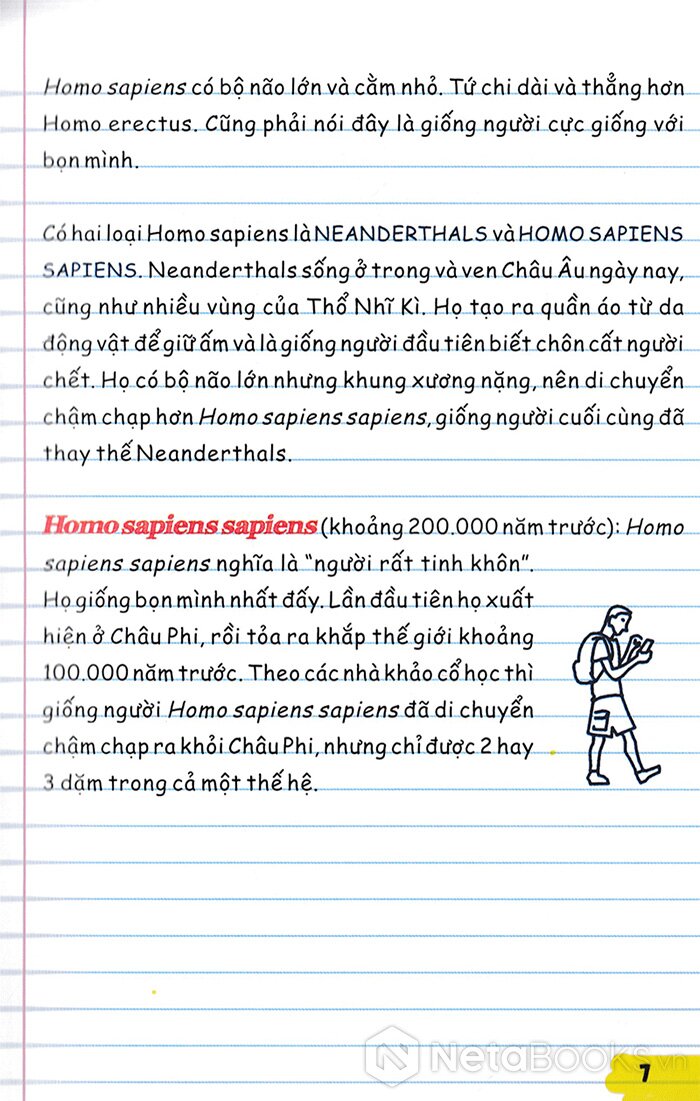 Homo sapiens có bộ não lớn và cằm nhỏ. Tứ chi dài và thẳng hơn
Homo erectus. Cũng phải nói đây là giống người cực giống với
bọn mình.
Có hai loại Homo sapiens là NEANDERTHALS và HOMO SAPIENS
SAPIENS. Neanderthals sống ở trong và ven Châu Âu ngày nay,
cũng như nhiều vùng của Thổ Nhĩ Kì. Họ tạo ra quần áo từ da
động vật để giữ ấm và là giống người đầu tiên biết chôn cất người
chết. Họ có bộ não lớn nhưng khung xương nặng, nên di chuyển
chậm chạp hơn Homo sapiens sapiens, giống người cuối cùng đã
thay thế Neanderthals.
Homo sapiens sapiens (khoảng 200.000 năm trước): Homo
sapiens sapiens nghĩa là “người rất tinh khôn”.
Họ giống bọn mình nhất đấy. Lần đầu tiên họ xuất
hiện ở Châu Phi, rồi tỏa ra khắp thế giới khoảng
100.000 năm trước. Theo các nhà khảo cổ học thì
giống người Homo sapiens sapiens đã di chuyển
chậm chạp ra khỏi Châu Phi, nhưng chỉ được 2 hay
3 dặm trong cả một thế hệ.
NetaBooks.vn
7